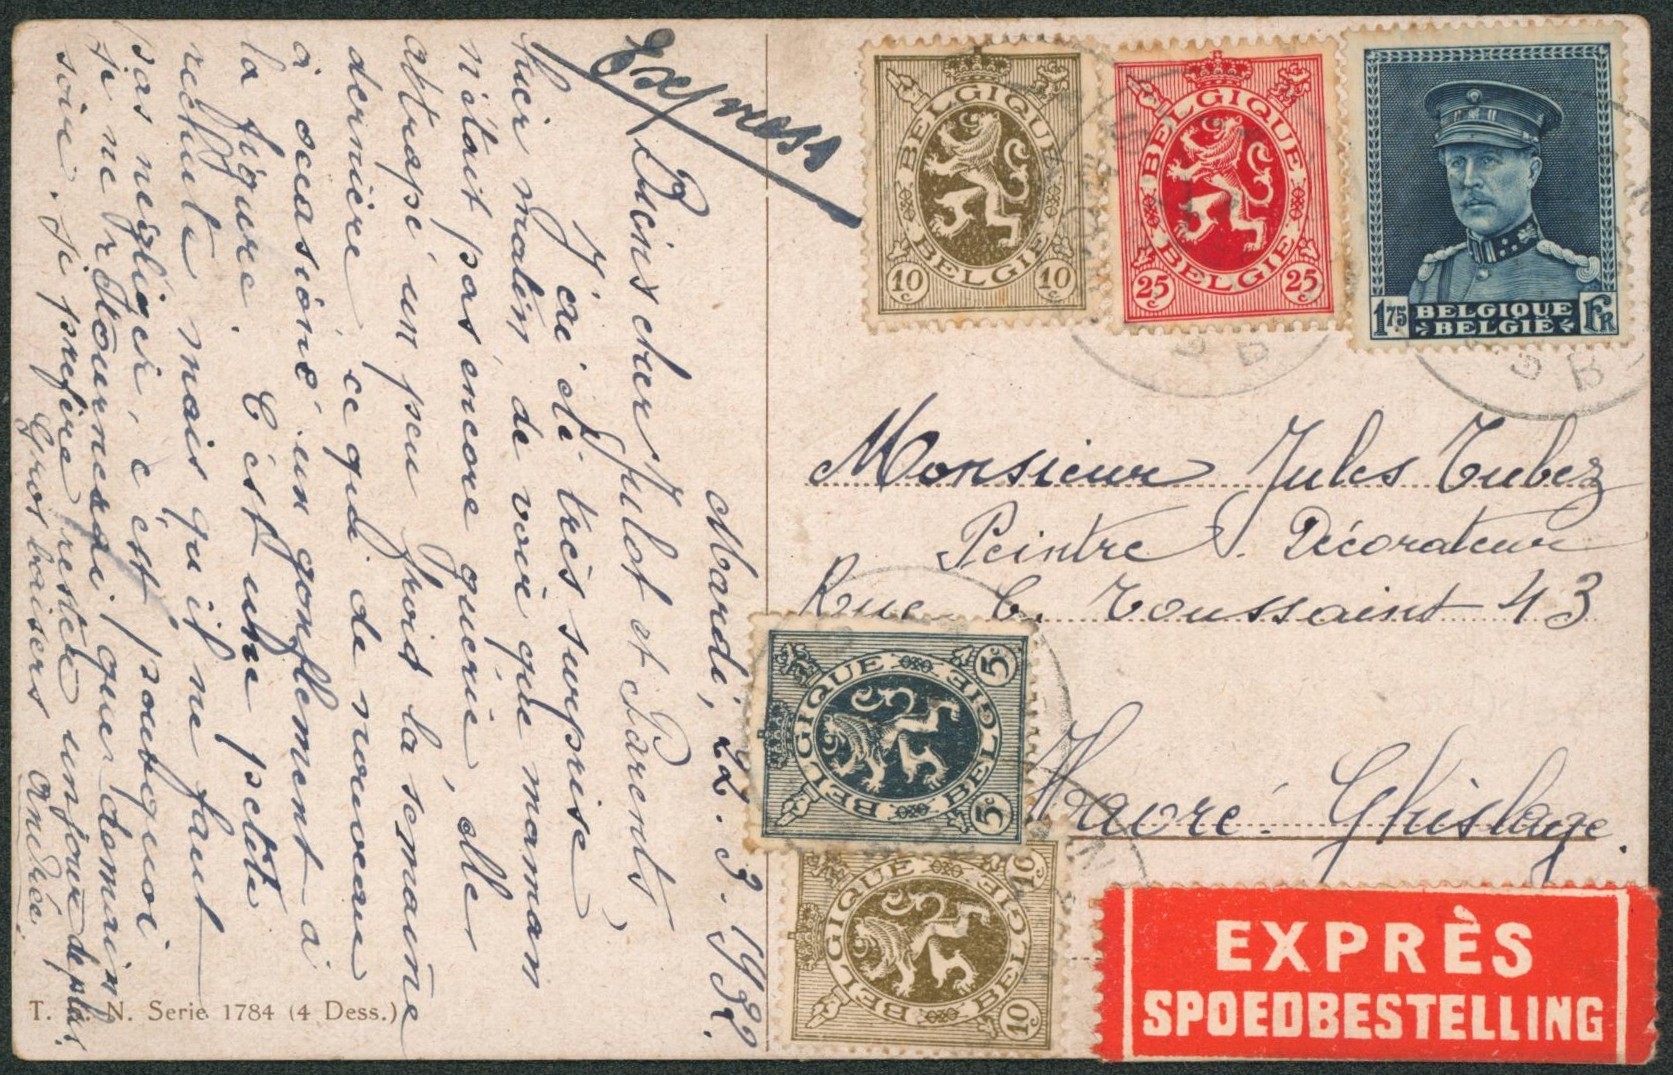 Express
Mardi, 22. 3. 1932.
Biens chers Julot et Parents,
J'ai été très surprise
hier matin de voir que maman
n'était pas encore guérie, elle
attrapé un peu froid la semaine
dernière, ce qui de nouveau
a occasioné un gonflement à
la figure. C'est une petite
rechute mais qu'il ne faut
pas négliger, c'est pourquoi
je ne retournerai que demain
soir. Je préfère rester un jour de plus.
Gros baisers Andrée.
T. S. N. Serie 1784 (4 Dess.)
BELGIQUE
BELGIE
10c 10c
BELGIQUE
BELGIE
25c 25c
1 75 BELGIQUE BELGIË FR
Monsieur Jules Tubez
Peintre Décorateur
Rue C. Toussaint 43
Havré. Ghislage.
BELGIQUE
BELGIE
5c 5c
BELGIQUE
BELGIE
10c 10c
EXPRÈS
SPOEDBESTELLING